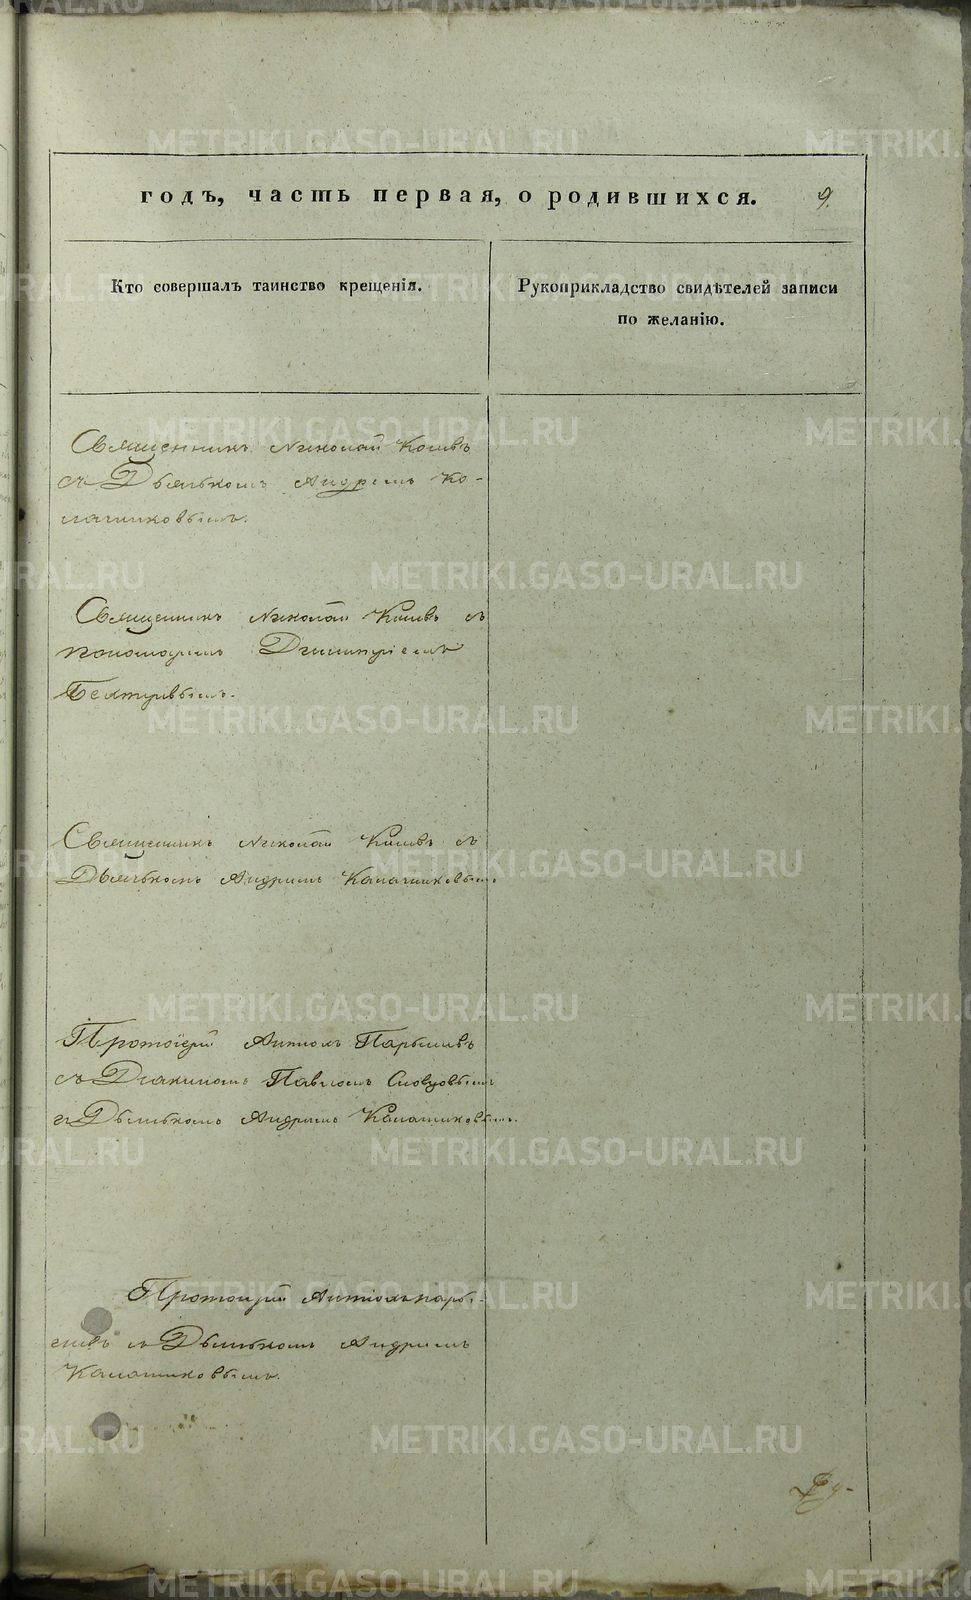 годъ, часть первая, о родившихся. 9.
Кто совершалъ таинство крещенія.
Рукоприкладство свидѣтелей записи
по желанію.
Священникъ Николай
съ Дьячькомъ Андреемъ Ка-
лашниковымъ.
Священникъ Николай съ
пономаремъ Димитріемъ
Священникъ Николай съ
Дьячькомъ Андреемъ Калашниковымъ
Протоіерей
съ Діакономъ Павломъ Словцовымъ
и Дьячькомъ Андреемъ Калашниковымъ.
Протоіерей
съ Дьячькомъ Андреемъ
Калашниковымъ.
METRIKI.GASO-URAL.RU